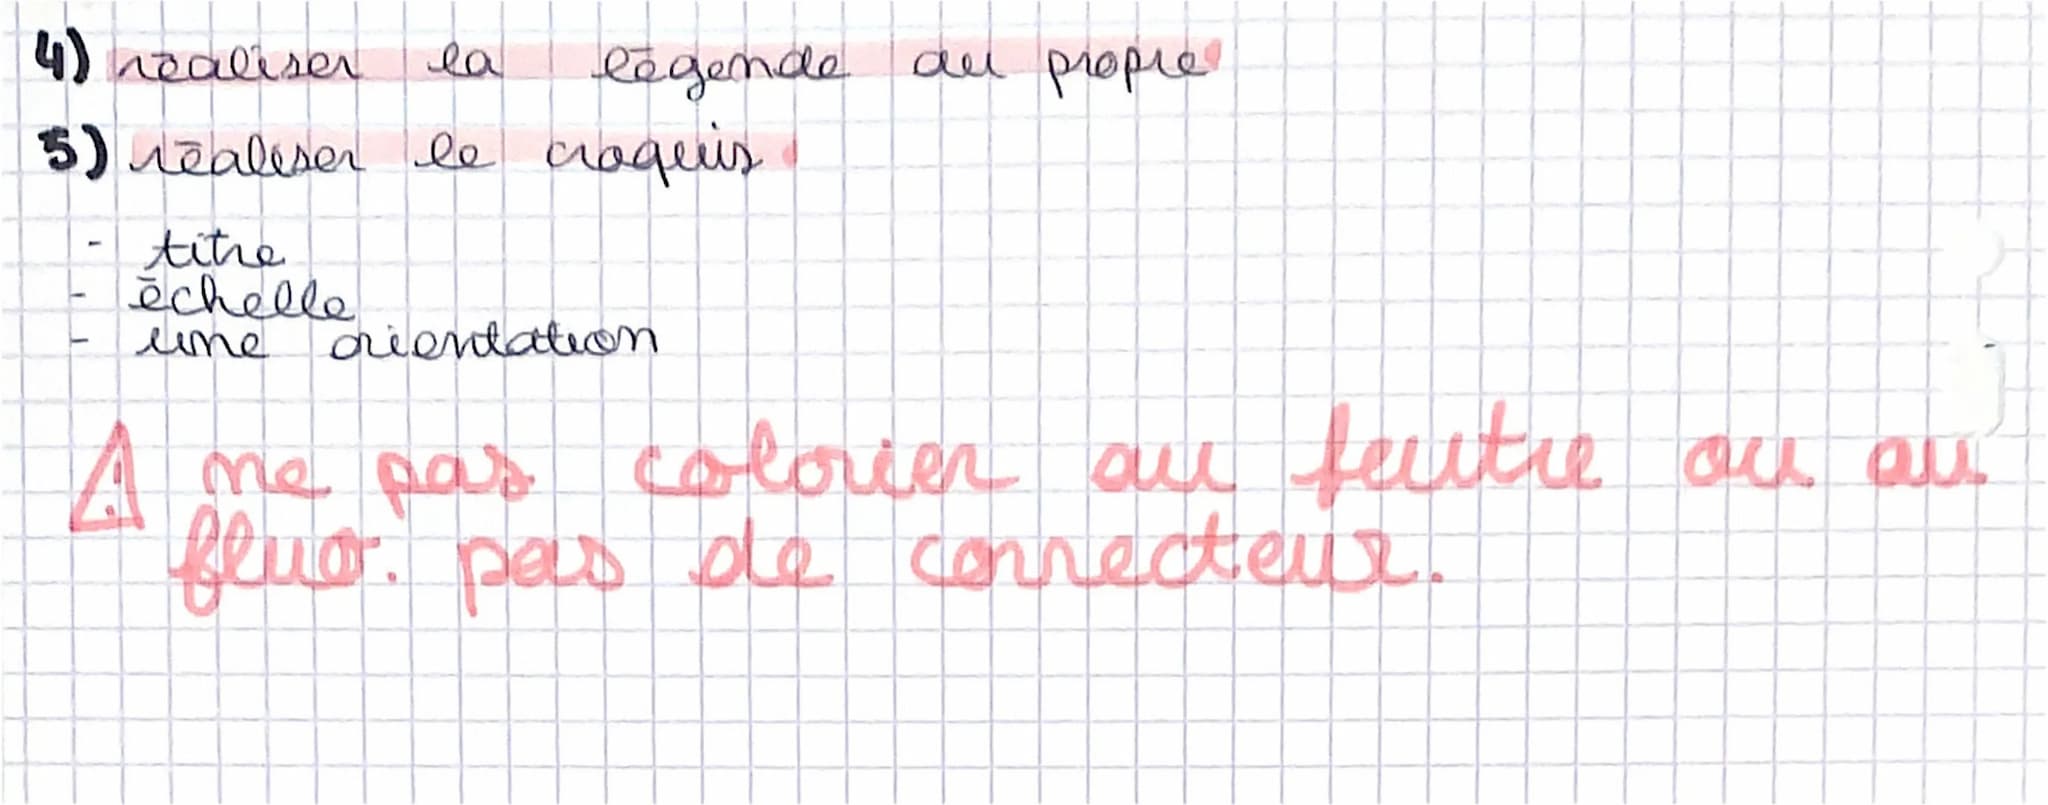 4) réaliser la légende au propre
5) réaliser le croquis
- titre
- échelle
- une orientation
⚠ ne pas colorier au feutre ou au
fluo. pas de correcteur.